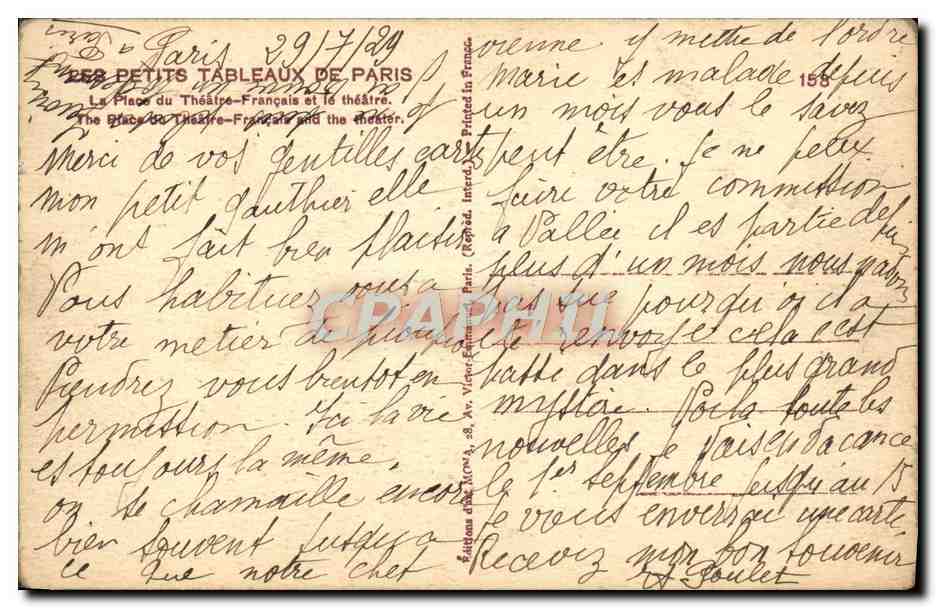 Paris 29/7/29
LES PETITS TABLEAUX DE PARIS
La Place du Théâtre-Français et le théâtre.
The Place du Théâtre-Français and the theater.
Merci de vos gentilles cartes
mon petit Gauthier elle
m'ont fait bien plaisir
Vous habituez vous a
votre metier de
Viendrez vous bientot en
permission. Ici la vie
es toujours la même.
on se chamaille encore
bien souvent jusqu'a
ce que notre chef
Editions d'art MONA, 28, Av. Victor-Emmanuel, Paris. (Reprod. Interd.) Printed in France.
CPAPHIL
vienne y mettre de l'ordre
Marie es malade depuis
158
un mois vous le savez
peut être. Je ne peux
faire votre commission
a Vallée il es partie de
plus d'un mois nous n'avons
pas su pourquoi il a
été envoyé cela c'est
batte dans le plus grand
mystère. Voila toute les
nouvelles je vais en vacance
le 1er septembre jusqu'au 15
Je vous enverrai une carte
Recevez mon bon souvenir
A Poulet